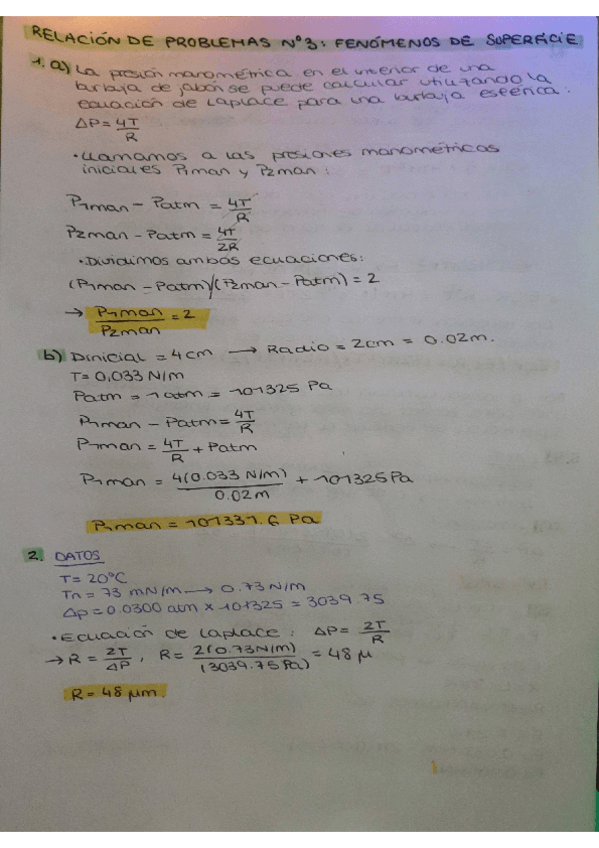 RELACIÓN DE PROBLEMAS Nº3: FENÓMENOS DE SUPERFICIE
1. a) La presión manométrica en el interior de una
burbuja de jabón se puede calcular utilizando la
ecuación de Laplace para una burbuja esférica:
ΔP = 4T/R
• Llamamos a las presiones manométricas
iniciales P1man y P2man:
P1man - Patm = 4T/R
P2man - Patm = 4T/2R
• Dividimos ambas ecuaciones:
(P1man - Patm)/(P2man - Patm) = 2
→ P1man/P2man = 2
b) Dinicial = 4cm → Radio = 2cm = 0.02m.
T = 0,033 N/m
Patm = 1 atm = 101325 Pa
P1man - Patm = 4T/R
P1man = 4T/R + Patm
P1man = 4(0.033 N/m)/0.02m + 101325 Pa
P1man = 101331.6 Pa
2. DATOS
T = 20ºC
Tn = 73 mN/m → 0.73 N/m
Δp = 0.0300 atm x 101325 = 3039.75
• Ecuación de Laplace: ΔP = 2T/R
→ R = 2T/ΔP, R = 2(0.73N/m)/(3039.75Pa) = 48 μ
R = 48 μm.